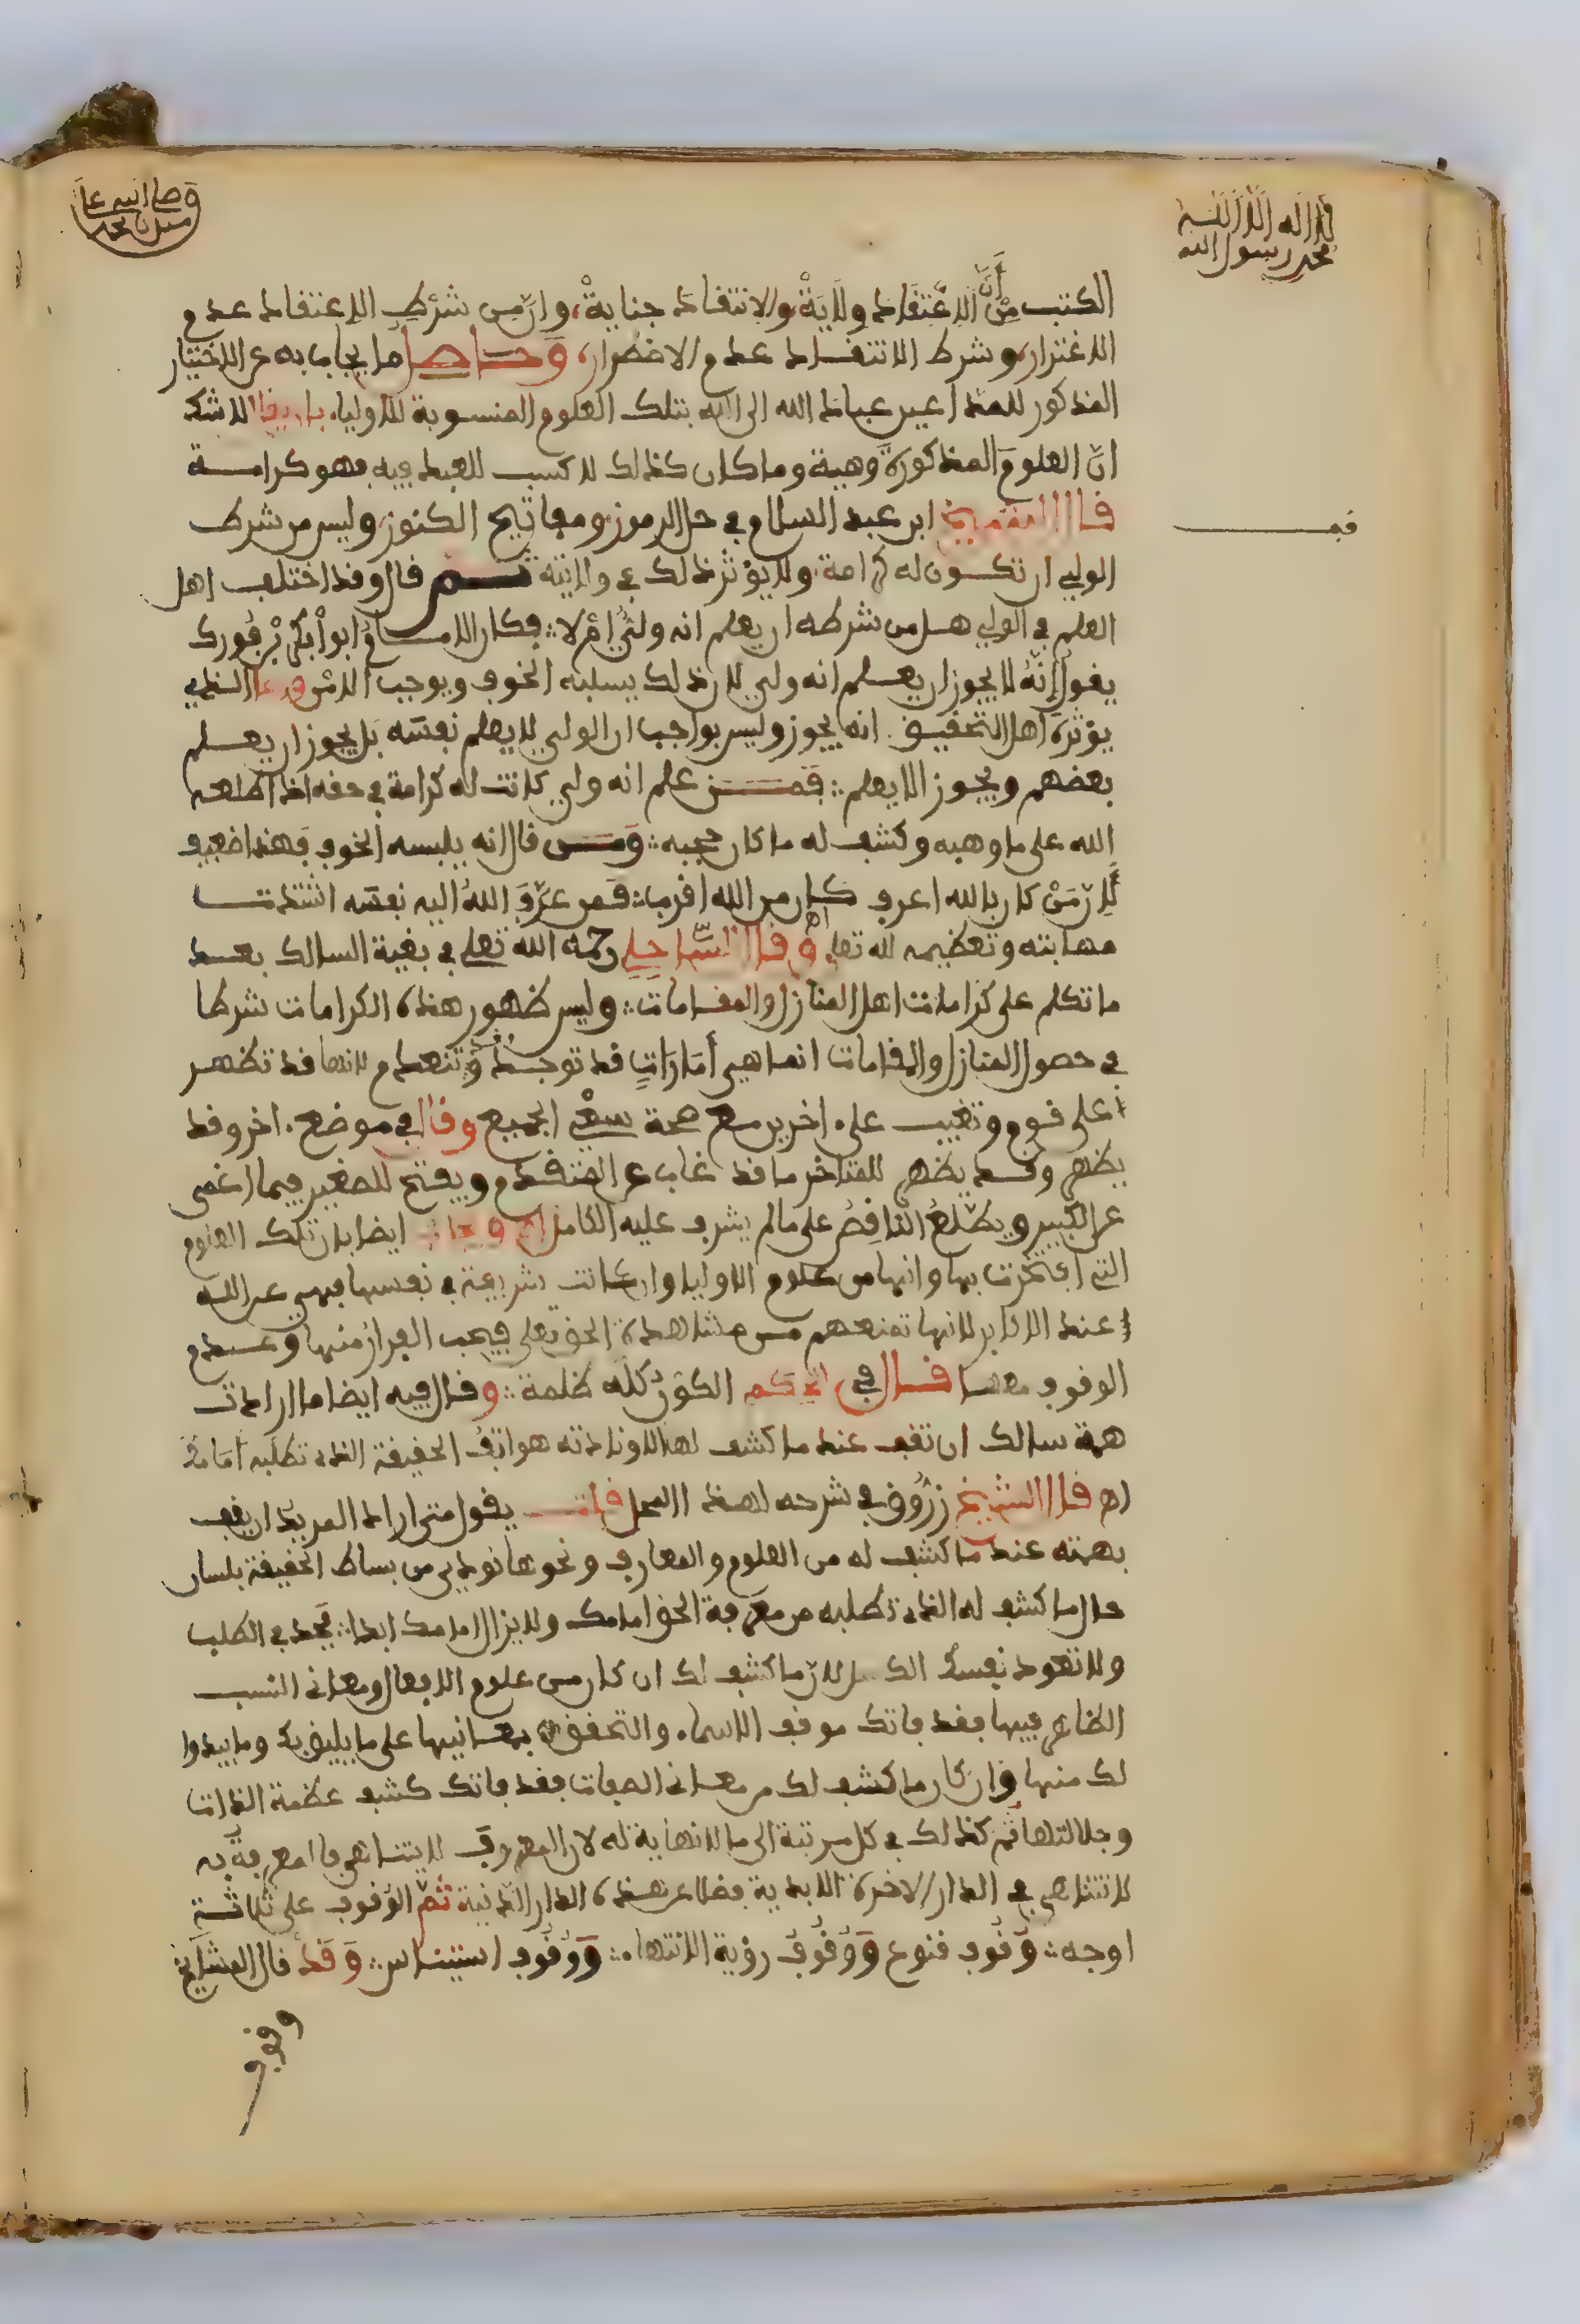 لا اله الا الله
محمد رسول الله
وصلى الله على
سيدنا محمد
الكتب من أن الاعتقاد ولاية والانتقاد جناية، وان من شرط الاعتقاد عدم
الاغترار، وشرط الانتقاد عدم الاضطرار، وحاصل ما يجاب به عن الاختيار
المذكور للداعين عباد الله الى الله بتلك العلوم المنسوبة للاولياء بان يقال لا شك
ان العلوم المذكورة وهبية وما كان كذلك لا كسب للعبد فيه فهو كرامة
قف
قال الشيخ ابن عبد السلام في حل الرموز ومفاتيح الكنوز وليس من شرط
الولي ان تكون له كرامة، ولا يؤثر ذلك في ولايته ثم قال وقد اختلف اهل
العلم في الولي هل من شرطه ان يعلم انه ولي ام لا؛ فكان الامام ابو بكر بن فورك
يقول انه لا يجوز ان يعلم انه ولي لان ذلك يسلبه الخوف ويوجب الامن والذي
يؤثره اهل التحقيق انه يجوز وليس بواجب ان الولي لا يعلم نفسه بل يجوز ان يعلم
بعضهم ويجوز الا يعلم؛ فمن علم انه ولي كانت له كرامة في حقه اذ اطلعه
الله على ما وهبه وكشف له ما كان حجبه؛ ومن قال انه يلبسه الخوف فهذا ضعيف
لان من كان بالله اعرف كان من الله اقرب؛ فمن عرف الله اليه نفسه اشتدت
مهابته وتعظيمه لله تعلى اه وقال الساحلي رحمه الله تعلى في بغية السالك بعد
ما تكلم على كرامات اهل المنازل والمقامات؛ وليس ظهور هذه الكرامات شرطا
في حصول المنازل والمقامات انما هي أمارات قد توجد وقد تنعدم لانها قد تظهر
على قوم وتغيب على اخرين مع صحة سعي الجميع وقال في موضع اخر وقد
يظهر وقد يظهر للمتاخر ما قد غاب عن المتقدم ويفتح للصغير فيما اغمي
عن الكبير ويطلع الناقص على ما لم يشرف عليه الكامل اه ويجاب ايضا بان تلك العلوم
التي افتخرت بها وانها من علوم الاولياء وان كانت شريفة في نفسها فهي عن الله
عند الاكابر لانها تمنعهم من مشاهدة الحق تعلى فيجب الفرار منها وعدم
الوقوف معها قال في الحكم الكون كله ظلمة؛ وقال فيه ايضا ما ارادت
همة سالك ان تقف عند ما كشف لها الا ونادته هواتف الحقيقة الذي تطلبه أمامك
اه قال الشيخ زروق في شرحه لهذا المحل قلت يقول متى اراد المريد ان يقف
بهمته عند ما كشف له من العلوم والمعارف ونحوها نودي من بساط الحقيقة بلسان
حال ما كشف له الذي تطلبه من معرفة الحق امامك ولا يزال امامك ابدا؛ فجد في الطلب
ولا تعود نفسك الكسل لان ما كشف لك ان كان من علوم الافعال ومعاني النسب
الظاهر فيها فقد فاتك موقف الاسماء والتحقق بمعانيها على ما يليق بك وما يبدوا
لك منها وان كان ما كشف لك من معاني الصفات فقد فاتك كشف عظمة الذات
وجلالتها ثم كذلك في كل مرتبة الى ما لا نهاية له لان المعروف لا يتناهى فالمعرفة به
لا تتناهى في الدار الاخرة الابدية فضلا عن هذه الدار الدنية ثم الوقوف على ثلاثة
اوجه؛ وقوف قنوع ووقوف رؤية الانتهاء؛ ووقوف استيناس؛ وقد قال المشايخ
وقوف